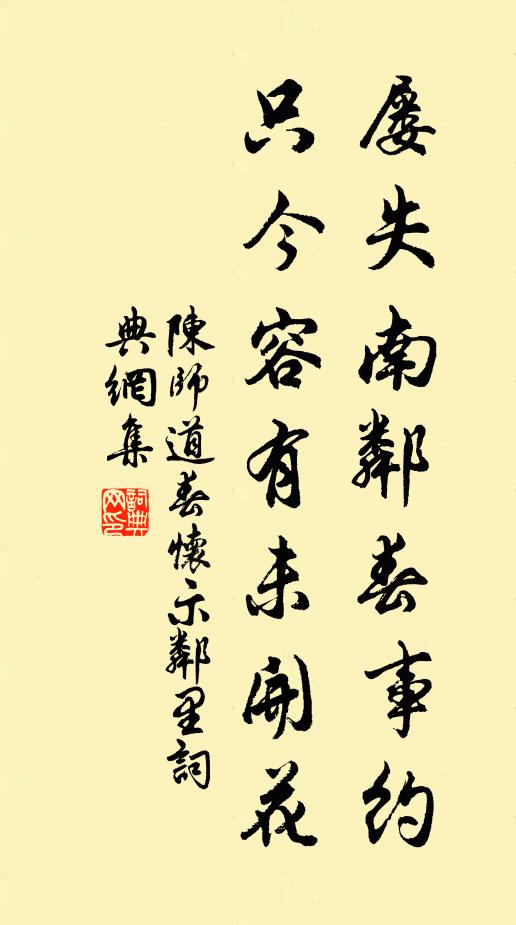 屡失南鄰春事約
只今容有未開花
陳師道春懷示鄰里詞
典網集
詞典网印